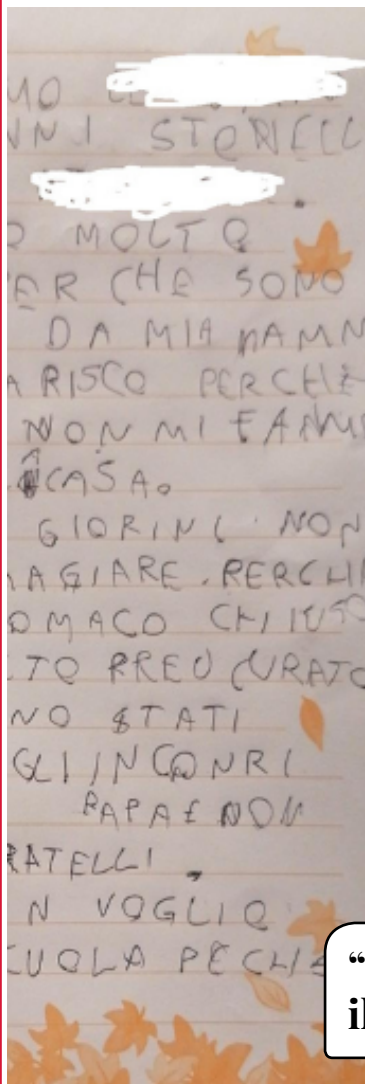 MO
NNI STORIELL
O MOLTO
PER CHE SONO
DA MIA MAMM
ARISCO PERCHÈ
NON MI FANNO
A CASA.
GIORINI NON
MAGIARE. PERCHE
OMACO CHIUSO
TO PREOCURATO
NO STATI
GLI INCONRI
PAPA E NON
RATELLI.
N VOGLIO
CUOLA PECHE
“
il